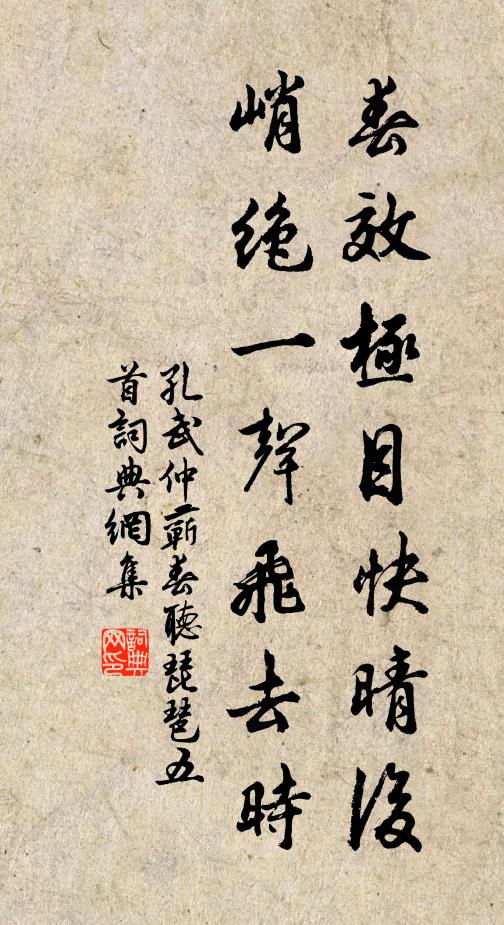 春效極目快晴後
峭絶一聲飛去時
孔武仲蘄春聽琵琶五
首詞典網集
詞典网印